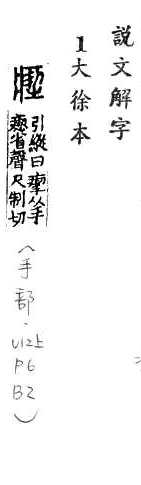 說文解字
1大徐本
引縱曰瘛从手
瘛省聲尺制切
(手部·U12上
P6
B2)